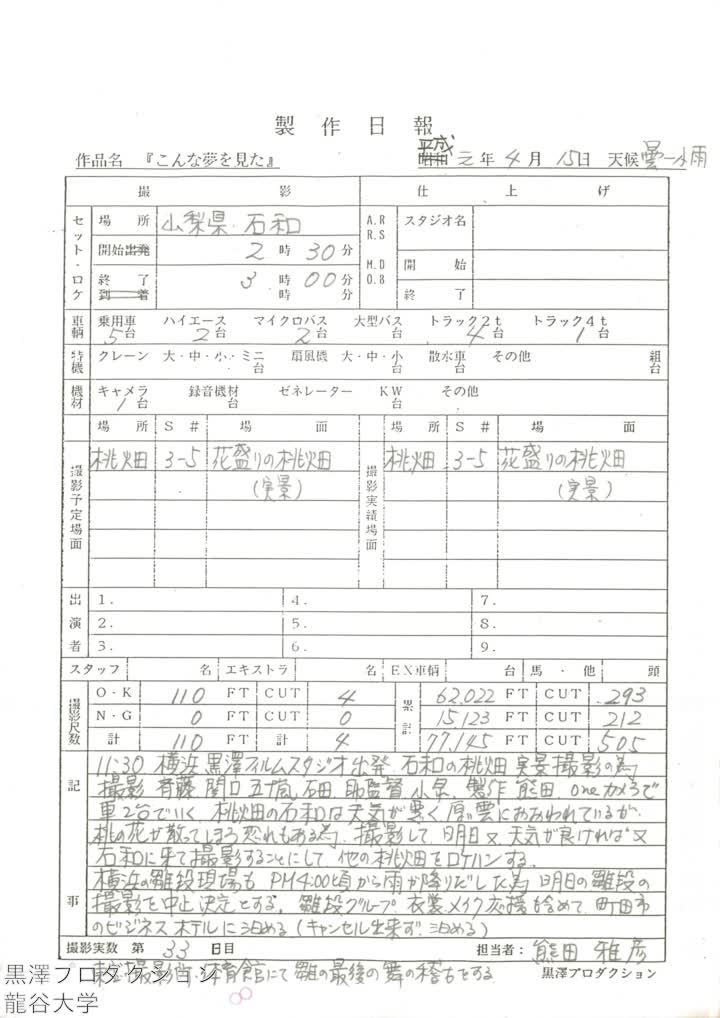 製作日報
作品名 『こんな夢を見た』 平成 元年 4月 15日 天候 曇一小雨
撮影 仕上げ
セット・ロケ 場所 山梨県 石和 A.R R.S スタジオ名
開始出発 2時30分 M.D O.8 開始
終了 到着 3時00分 時 分 終了
車輌 乗用車 5台 ハイエース 2台 マイクロバス 2台 大型バス トラック2t 4台 トラック4t 1台
特機 クレーン 大・中・小・ミニ 台 扇風機 大・中・小 台 散水車 台 その他 組 台
機材 キャメラ 1台 録音機材 台 ゼネレーター KW 台 その他
場所 S# 場面 場所 S# 場面
撮影予定場面 桃畑 3-5 花盛りの桃畑 撮影実績場面 桃畑 3-5 花盛りの桃畑
(実景) (実景)
出演者 1. 4. 7.
2. 5. 8.
3. 6. 9.
スタッフ 名 エキストラ 名 EX車輌 台 馬・他 頭
撮影尺数 O・K 110 FT CUT 4 累計 62,022 FT CUT 293
N・G 0 FT CUT 0 15,123 FT CUT 212
計 110 FT CUT 4 77,145 FT CUT 505
記事 11:30 横浜 黒澤フィルムスタジオ出発 石和の桃畑 実景撮影の為
撮影 斉藤 関口 五十嵐 石田 助監督 小泉、製作 熊田、oneカメラで
車2台でいく、桃畑の石和は天気が悪く 厚い雲におおわれているが、
桃の花が散ってしまう恐れもある為、撮影して、明日又、天気が良ければ 又
石和に来て撮影することにして、他の桃畑をロケハンする。
横浜の雛段現場も PM4:00頃から雨が降りだした為 明日の雛段の
撮影を中止決定とする。 雛段グループ 衣裳メイク応援も含めて 町田市
のビジネスホテルに泊める(キャンセル出来ず 泊める)
撮影実数 第 33 日目 担当者: 熊田 雅彦
撮影所 体育館にて 雛の最後の舞の稽古をする
黒澤プロダクション
黒澤プロダクション
龍谷大学